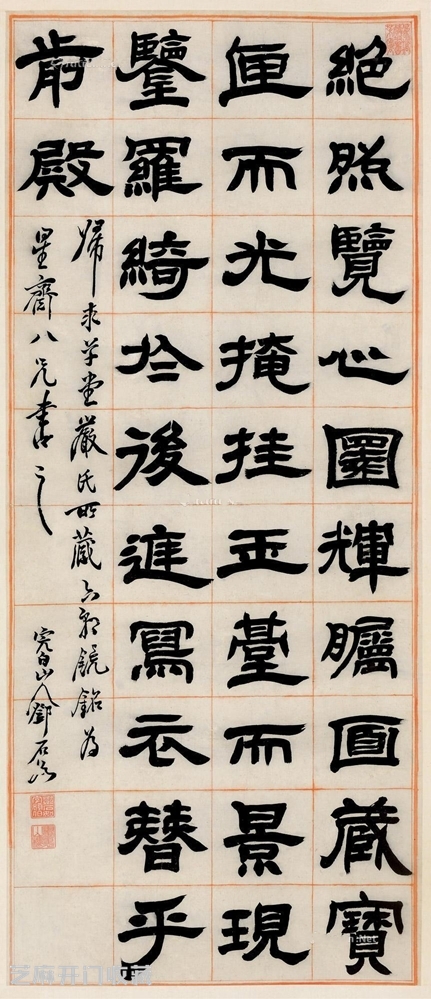 絕照覽心圓輝矚面藏寶
匣而光掩挂玉臺而景現
鑒羅綺於後庭寫衣簪乎
前殿
歸求草堂嚴氏所藏六朝鏡銘為
星齋八兄書之
完白山人鄧石如
芝麻开门收藏